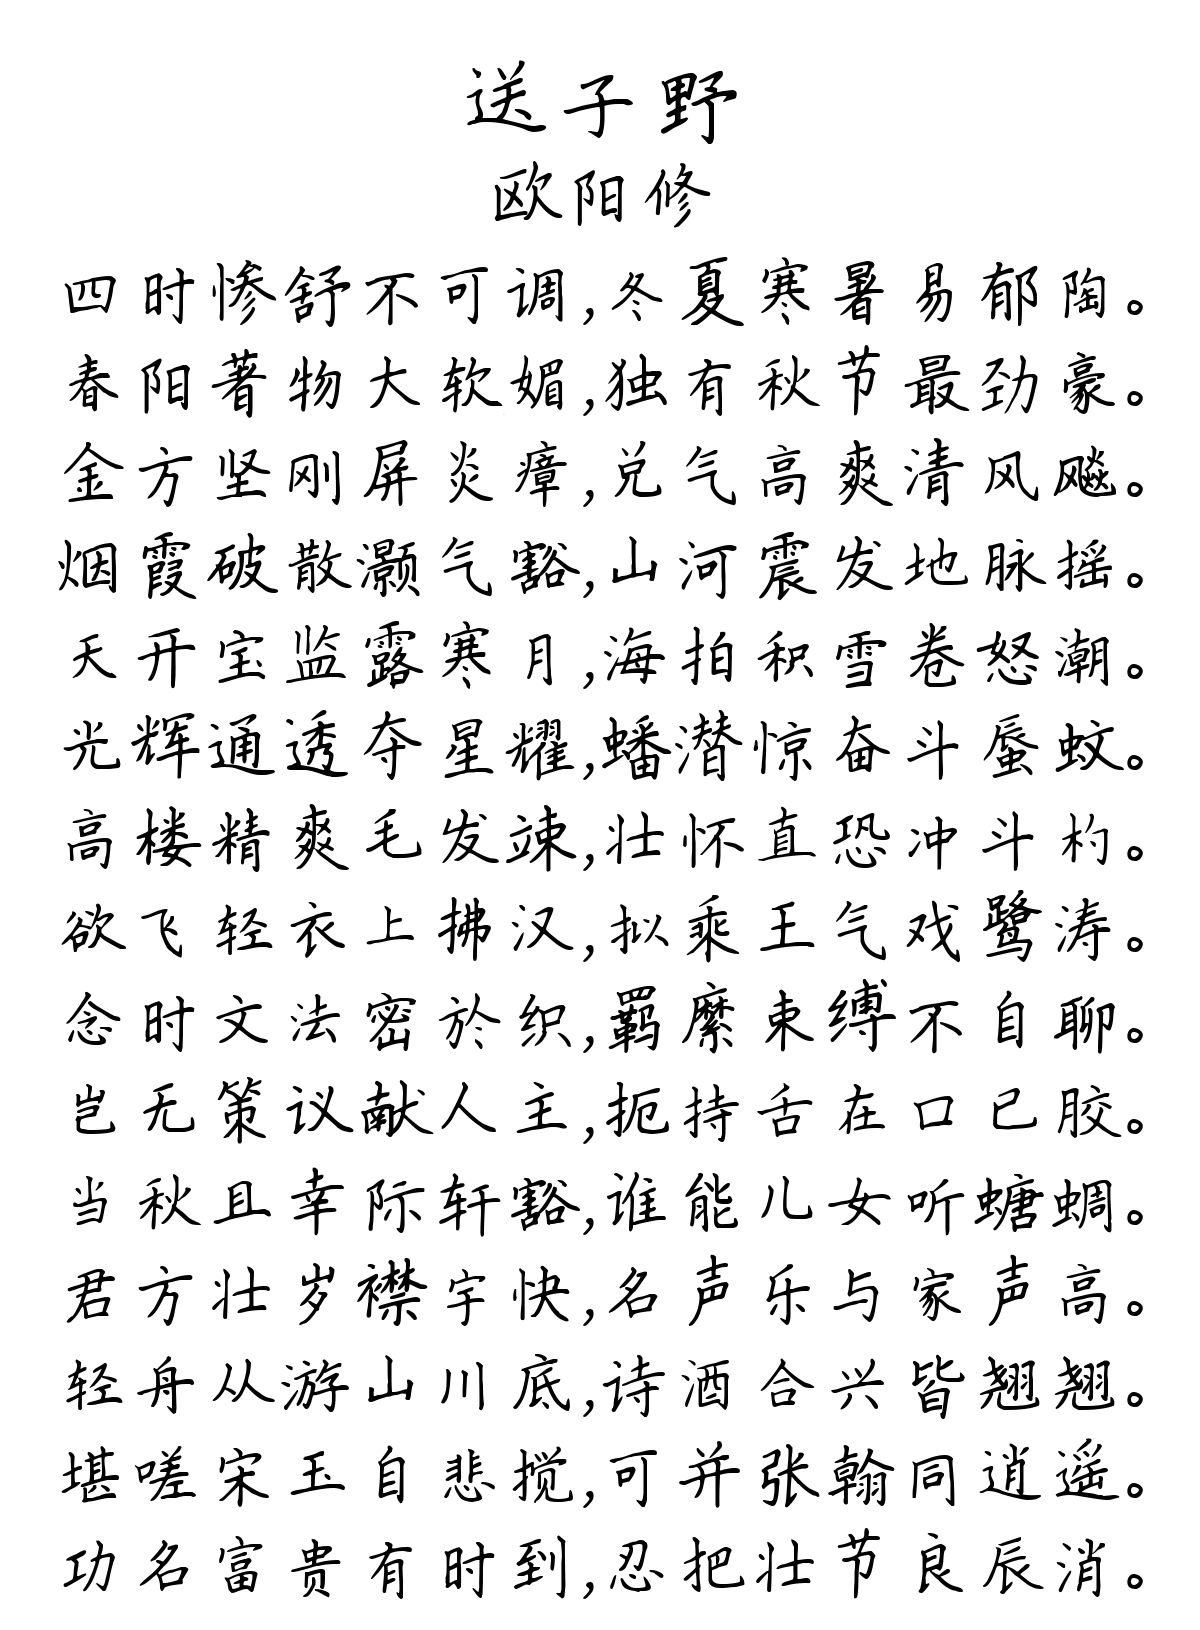 送子野
欧阳修
四时惨舒不可调,冬夏寒暑易郁陶。
春阳著物大软媚,独有秋节最劲豪。
金方坚刚屏炎瘴,兑气高爽清风飚。
烟霞破散灏气豁,山河震发地脉摇。
天开宝监露寒月,海拍积雪卷怒潮。
光辉通透夺星耀,蟠潜惊奋斗蜃蚊。
高楼精爽毛发竦,壮怀直恐冲斗杓。
欲飞轻衣上拂汉,拟乘王气戏鹭涛。
念时文法密於织,羁縻束缚不自聊。
岂无策议献人主,扼持舌在口已胶。
当秋且幸际轩豁,谁能儿女听螗蜩。
君方壮岁襟宇快,名声乐与家声高。
轻舟从游山川底,诗酒合兴皆翘翘。
堪嗟宋玉自悲搅,可并张翰同逍遥。
功名富贵有时到,忍把壮节良辰消。